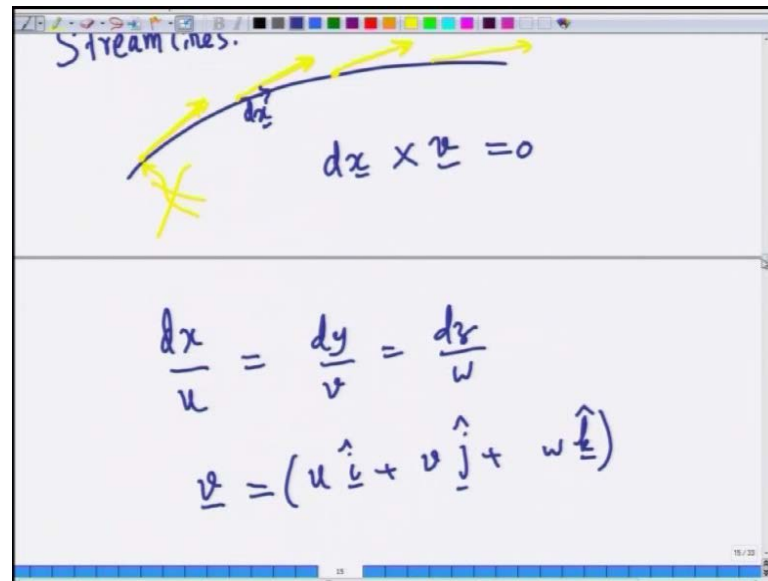 Streamlines.
dx
dx × v = 0
dx/u = dy/v = dz/w
v = (u î + v ĵ + w k̂)
15/33
15